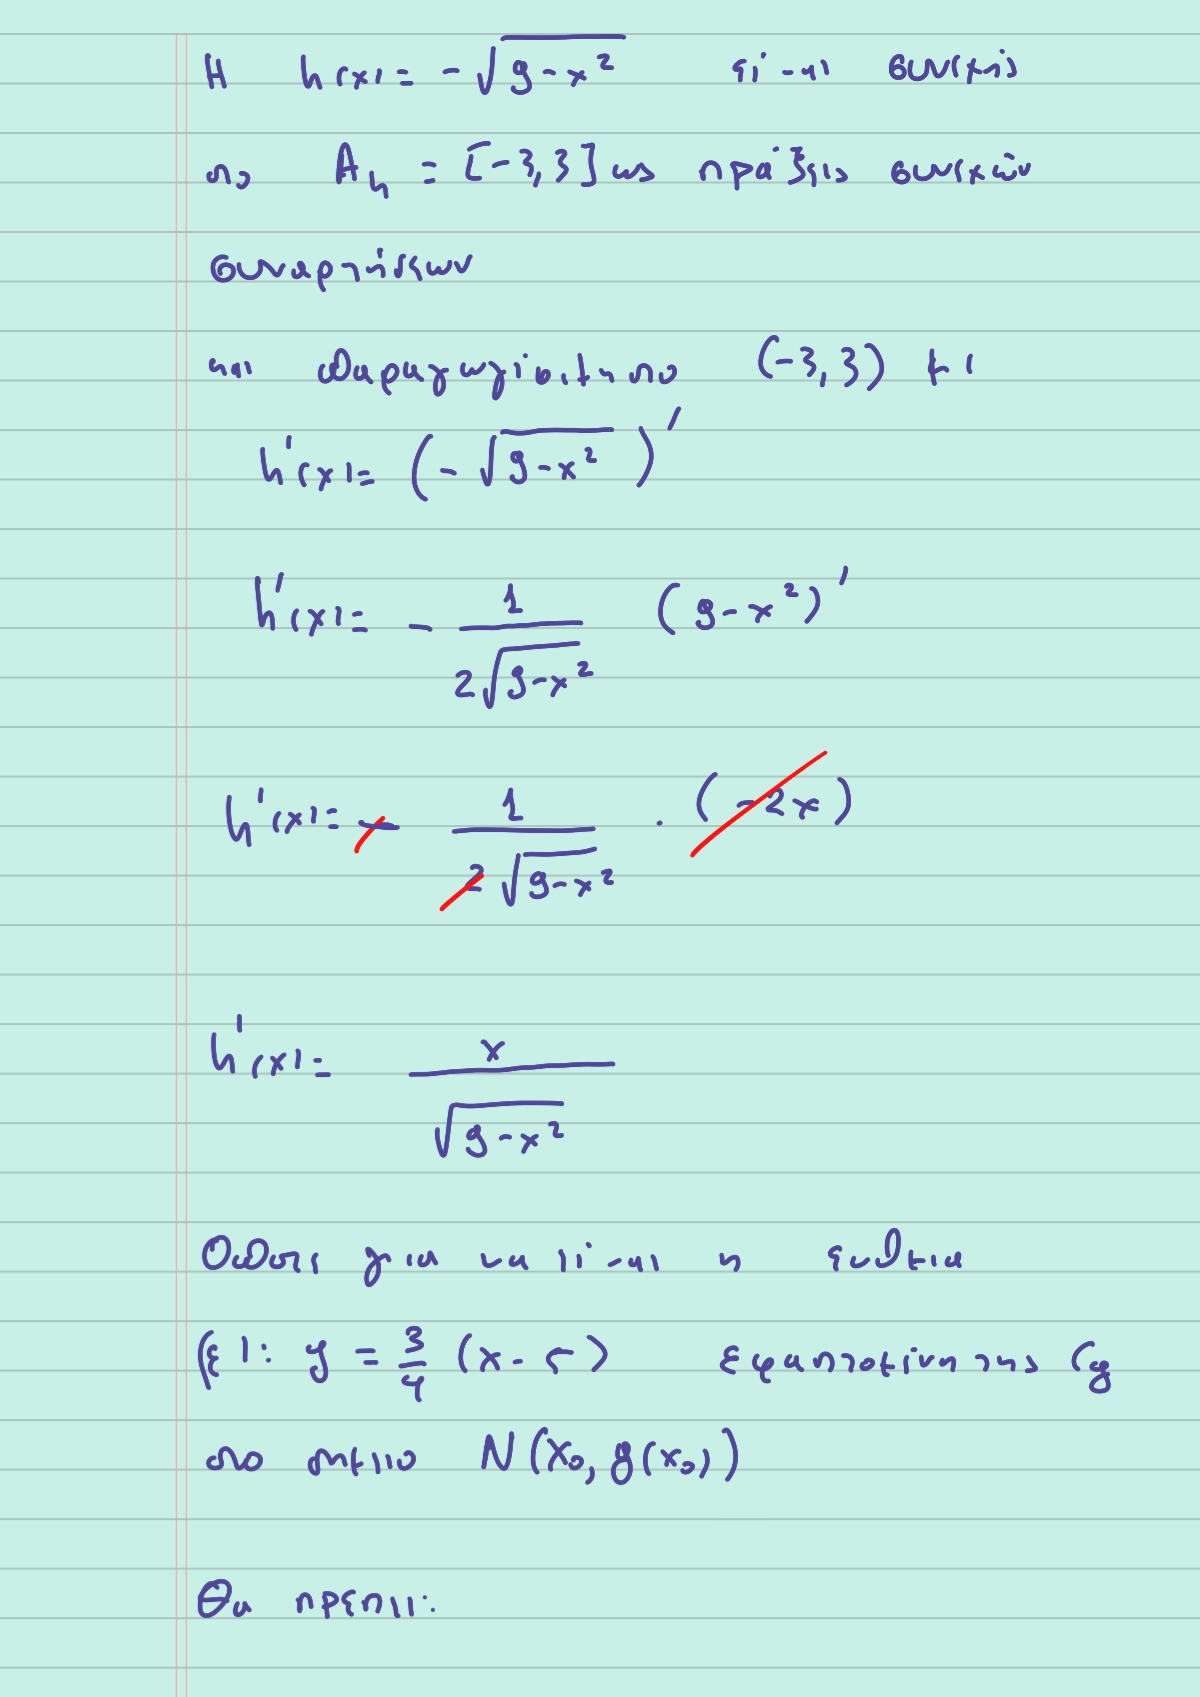 Η h(x) = -√(9-x²) είναι συνεχής
στο A_h = [-3,3] ως πράξεις συνεχών
συναρτήσεων
και παραγωγίσιμη στο (-3,3) με
h'(x) = (-√(9-x²))'
h'(x) = - 1/(2√(9-x²)) (9-x²)'
h'(x) = - 1/(2√(9-x²)) · (-2x)
h'(x) = x/√(9-x²)
Οπότε για να είναι η ευθεία
(ε): y = 3/4 (x-5) εφαπτομένη της Cg
στο σημείο N(x₀, g(x₀))
Θα πρέπει: